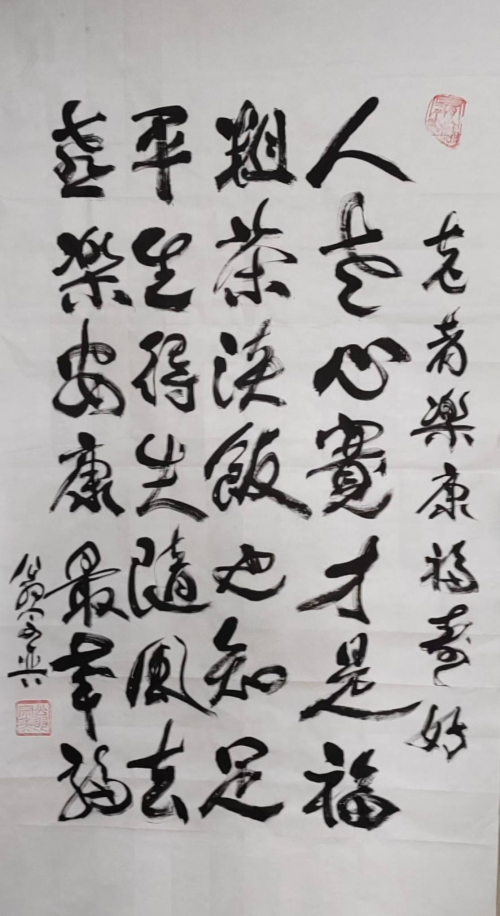 老者樂康福壽好
人老心寬才是福
粗茶淡飯也知足
平生得失隨風去
喜樂安康最幸福